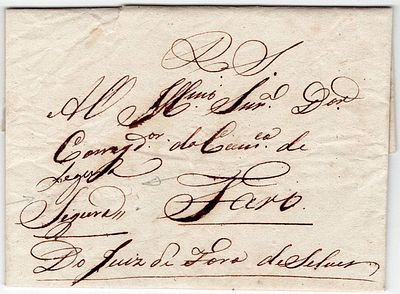 R S
Al Illmo Snr. Dor.
Corregdor. da Comca de
Segura
Segura Faro.
Do Juiz de Fora de Silves